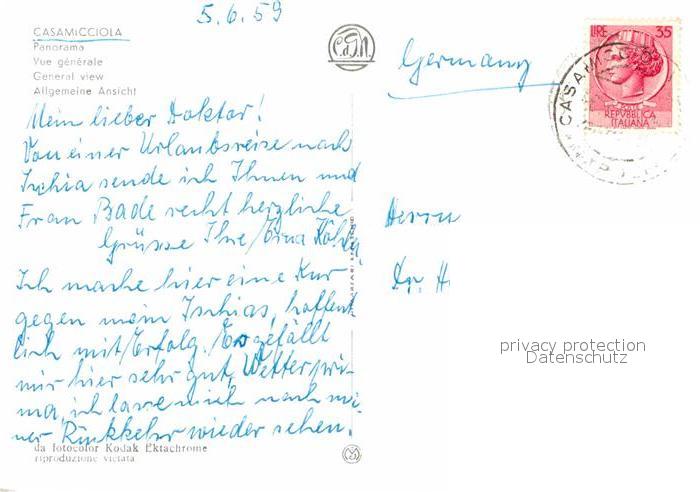 5.6.59
CASAMICCIOLA
Panorama
Vue générale
General view
Allgemeine Ansicht
Mein lieber Doktor!
Von einer Urlaubsreise nach
Ischia sende ich Ihnen und
Frau Bade recht herzliche
Grüsse Ihre
Ich mache hier eine Kur
gegen mein Ischias, hoffent
lich mit Erfolg. Es gefällt
mir hier sehr gut, Wetter pri-
ma, ich lasse mich nach mei
ner Rückkehr wieder sehen.
da fotocolor Kodak Ektachrome
riproduzione vietata
Germany
LIRE 35
REPVBBLICA
ITALIANA
CASAMICC
Herrn
Dr. H
privacy protection
Datenschutz